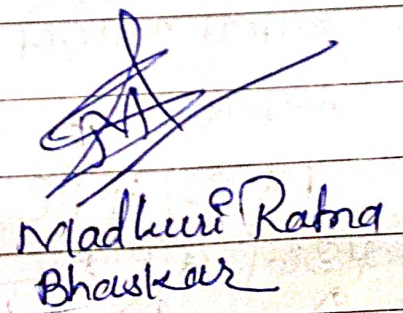 Madhuri Ratna
Bhaskar